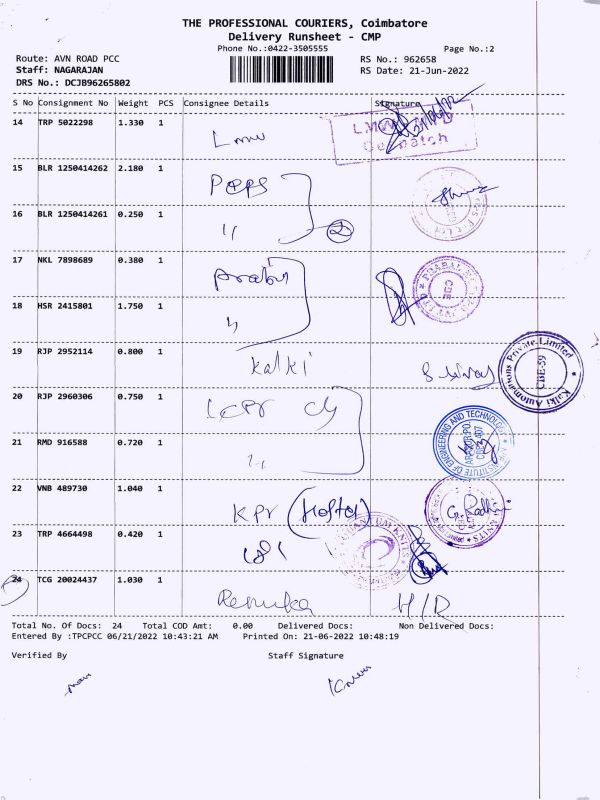 THE PROFESSIONAL COURIERS, Coimbatore
Delivery Runsheet - CMP
Phone No.:0422-3505555
Page No.:2
Route: AVN ROAD PCC
RS No.: 962658
Staff: NAGARAJAN
RS Date: 21-Jun-2022
DRS No.: DCJB96265802
S No Consignment No Weight PCS Consignee Details Signature
14 TRP 5022298 1.330 1 Lmw
LMW
Despatch
15 BLR 1250414262 2.180 1 Peps
16 BLR 1250414261 0.250 1 " 2
17 NKL 7898689 0.380 1
CBE
18 HSR 2415801 1.750 1 "
19 RJP 2952114 0.800 1 Kalki
Kalki Automations Private Limited
CBE-59
20 RJP 2960306 0.750 1
INSTITUTE OF ENGINEERING AND TECHNOLOGY
21 RMD 916588 0.720 1 "
22 VNB 489730 1.040 1 KPR (Hostel)
KNITS
23 TRP 4664498 0.420 1
QUANTUM KNITS
24 TCG 20024437 1.030 1 Renuka H/R
Total No. Of Docs: 24 Total COD Amt: 0.00 Delivered Docs: Non Delivered Docs:
Entered By :TPCPCC 06/21/2022 10:43:21 AM Printed On: 21-06-2022 10:48:19
Verified By Staff Signature